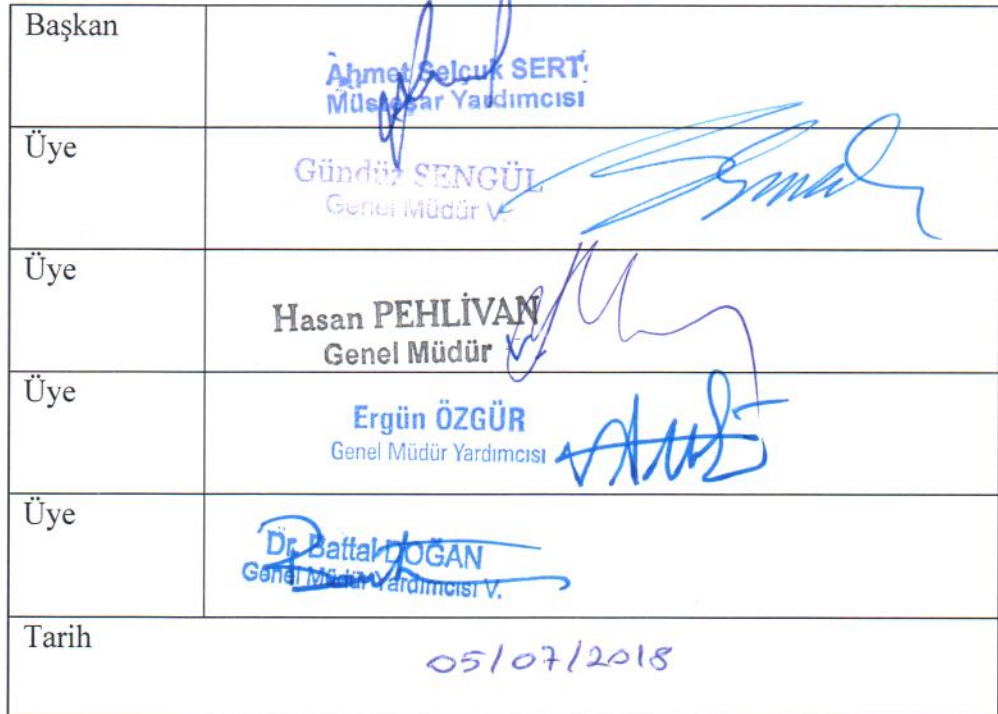 Başkan
Ahmet Selçuk SERT
Müsteşar Yardımcısı
Üye
Gündüz SENGÜL
Genel Müdür V.
Üye
Hasan PEHLİVAN
Genel Müdür
Üye
Ergün ÖZGÜR
Genel Müdür Yardımcısı
Üye
Dr. Battal DOĞAN
Genel Müdür Yardımcısı V.
Tarih
05/07/2018